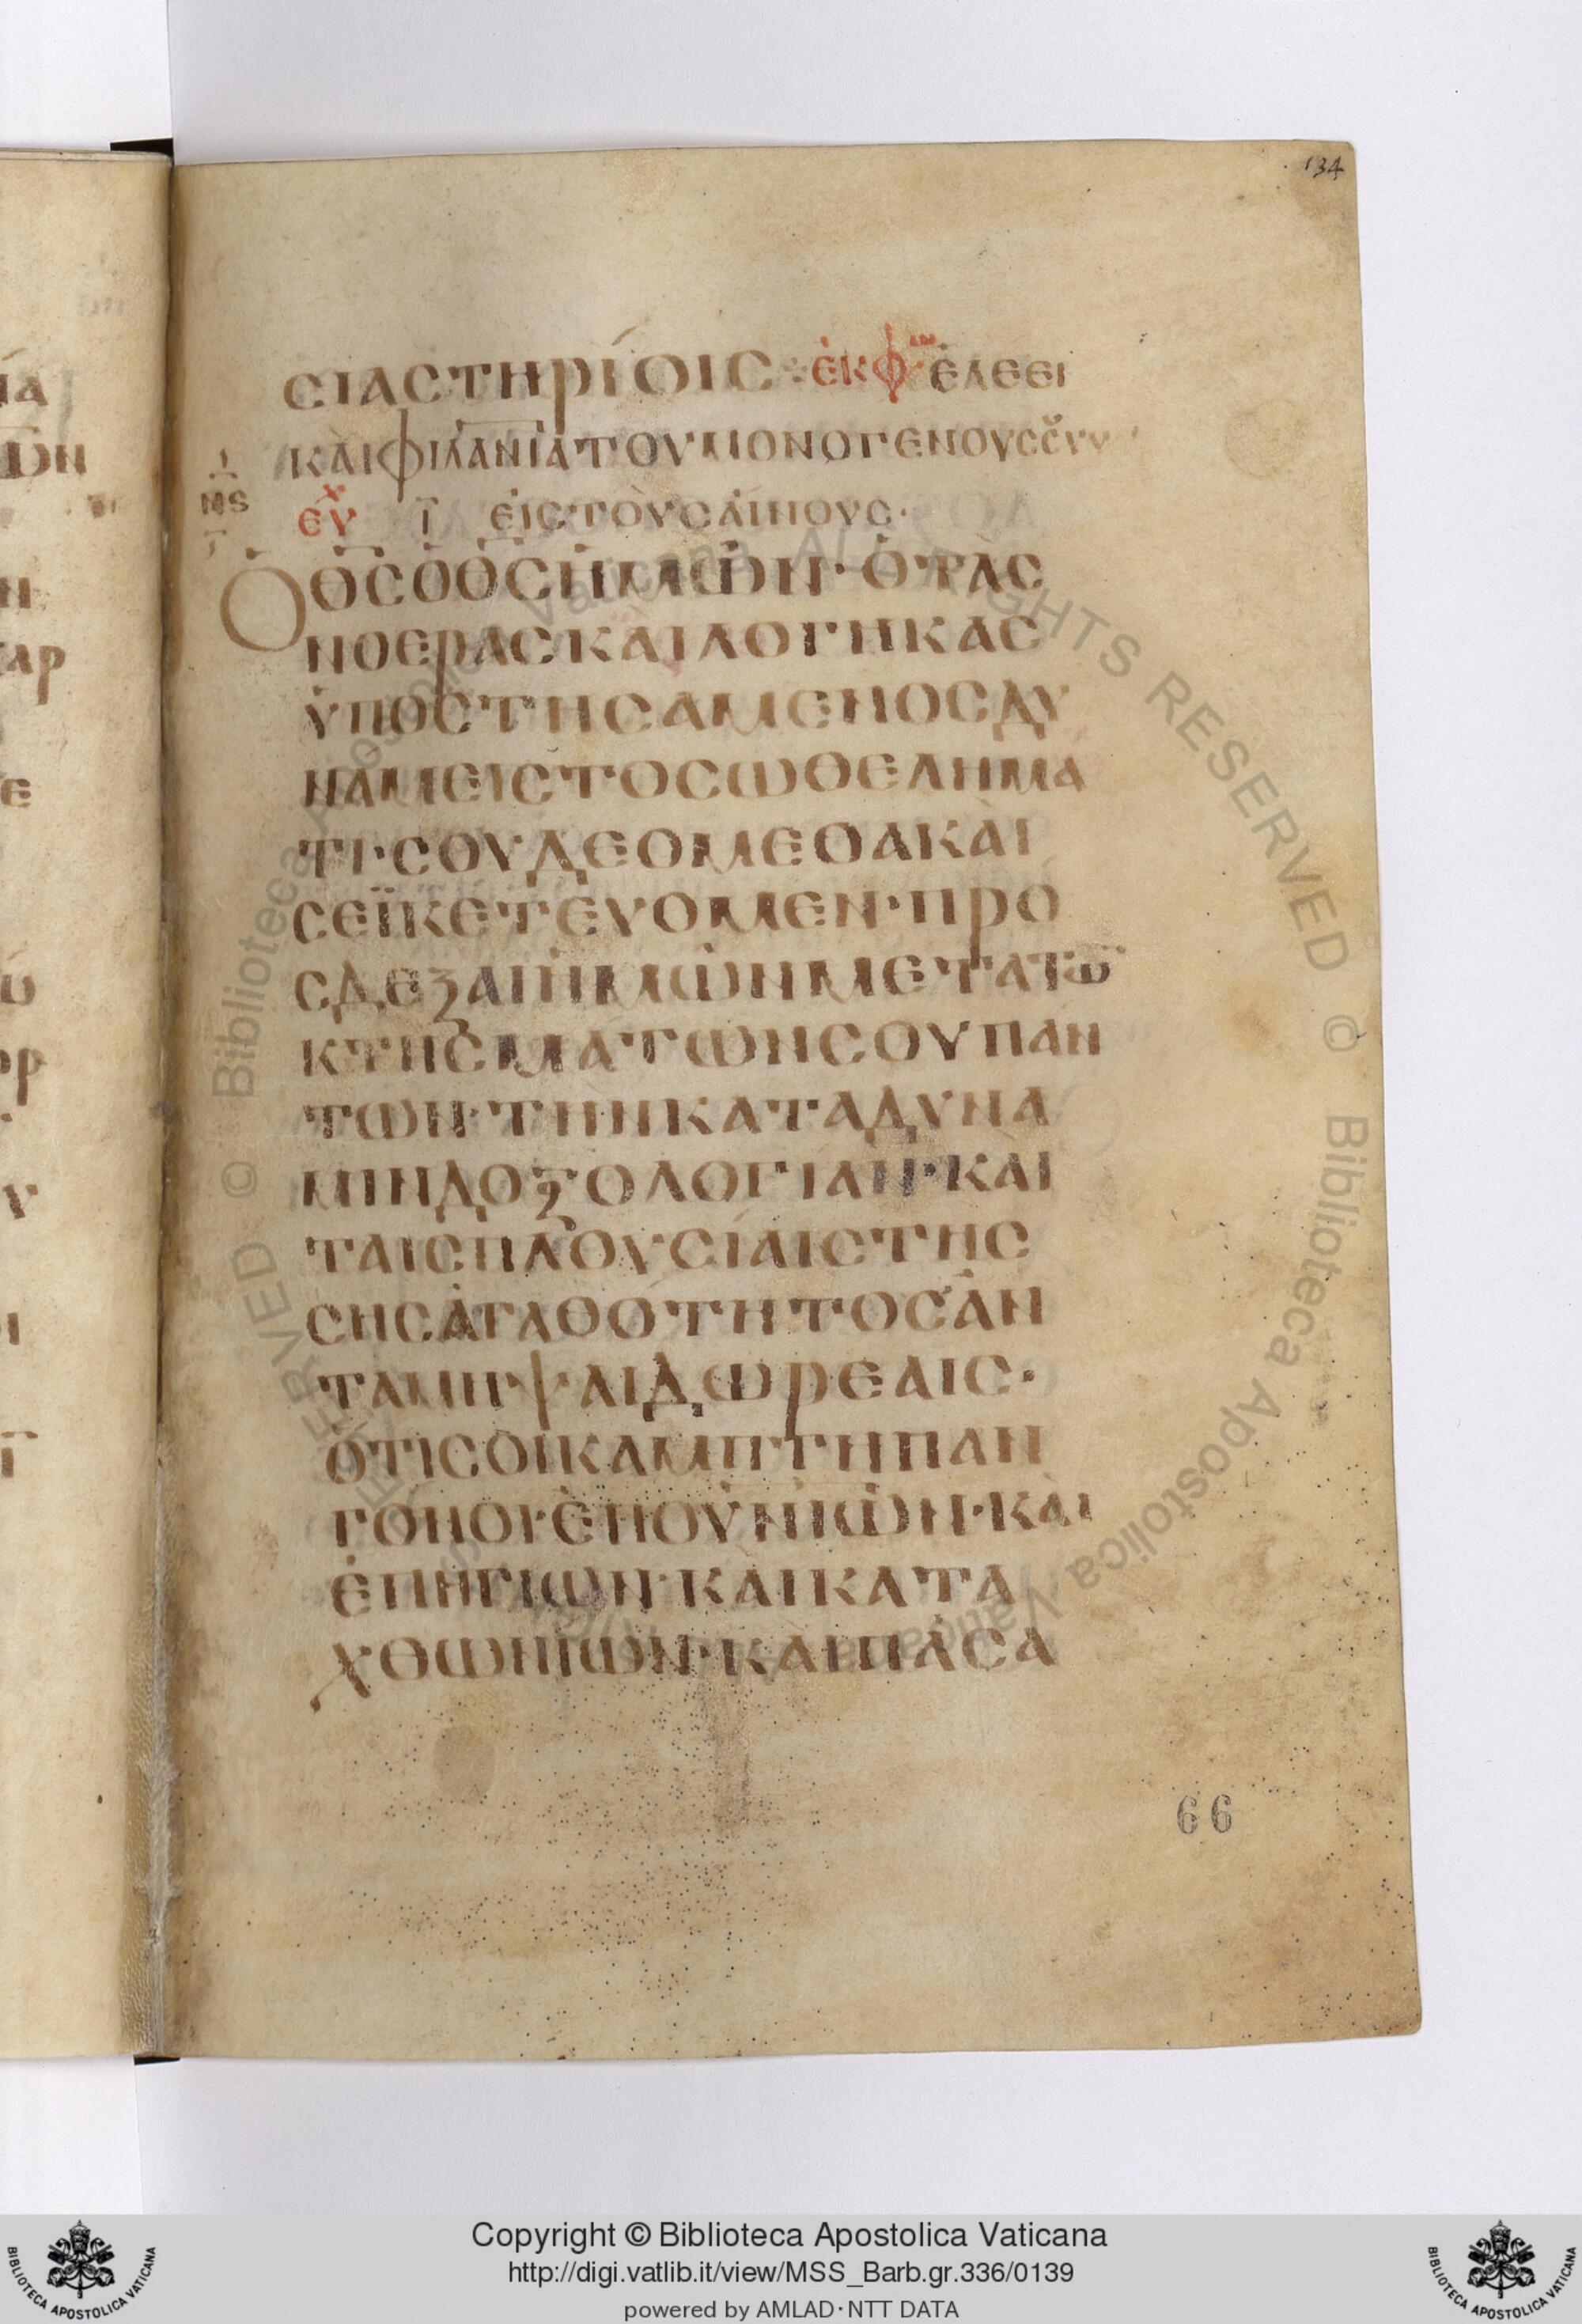 134
ϹΙΑϹΤΗΡΊΟΙϹ · ἘΚΦ ἘΛΕΕΙ
ΚΑῚ ΦΙΛΑΝΙΑ ΤΟΥ ΜΟΝΟΓΕΝΟΥϹ ϹΟΥ
ΜϚ ΕΥΧ Γ ΕἸϹ ΤΟῪϹ ΑἼΝΟΥϹ·
Ὁ Θ̅Ϲ̅ Ὁ Θ̅Ϲ̅ ἩΜΩ͂Ν· Ὁ ΤᾺϹ
ΝΟΕΡΑϹ ΚΑΙ ΛΟΓΗΚΑϹ
ὙΠΟϹΤΗϹΑΜΕΝΟϹ ΔΥ
ΝΑΜΕΙϹ ΤΟ ϹΩ ΘΕΛΗΜΑ
ΤΙ· ϹΟΥ ΔΕΟΜΕΘΑ ΚΑῚ
ϹΕ ΪΚΕΤΕΥΟΜΕΝ· ΠΡΟ
ϹΔΕΞΑΙ ἩΜΩ͂Ν ΜΕΤΑ ΤΩ̅
ΚΤΗϹΜΑΤΩΝ ϹΟΥ ΠΑΝ
ΤΩΝ· ΤΗΝ ΚΑΤΑ ΔΥΝΑ
ΜΙΝ ΔΟΞΟΛΟΓΙΑΝ· ΚΑῚ
ΤΑΙϹ ΠΛΟΥϹΊΑΙϹ ΤΗϹ
ϹΗϹ ἈΓΑΘΟΤΗΤΟϹ ἈΝ
ΤΑΜΙΨΑΙ ΔΩΡΕΑΙϹ·
ὍΤΙ ϹΟΙ ΚΑΜΠΤΗ ΠΑΝ
ΓΟΝΟΙ· ἘΠΟΥΝΙΩ͂Ν· ΚΑῚ
ἘΠΗΓΙΩΝ· ΚΑΙ ΚΑΤΑ
ΧΘΩΝΙΩΝ· ΚΑΙ ΠᾺϹΑ
66
Copyright © Biblioteca Apostolica Vaticana
http://digi.vatlib.it/view/MSS_Barb.gr.336/0139
powered by AMLAD·NTT DATA